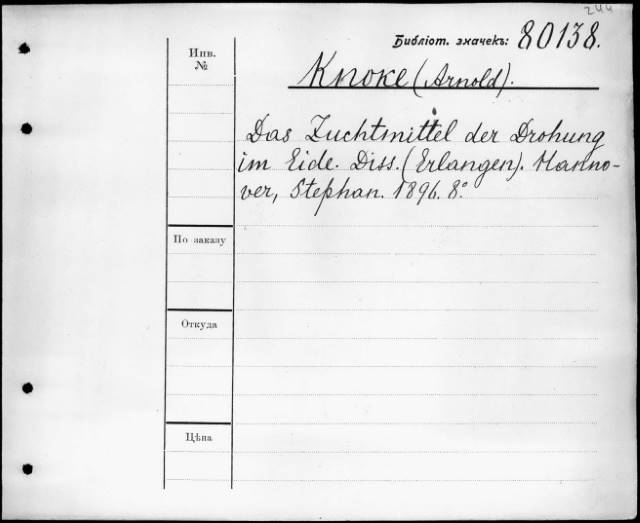 244
Библіот. значекъ: 80138.
Инв.
№
Knoke (Arnold).
Das Zuchtmittel der Drohung
im Eide. Diss. (Erlangen). Hanno-
ver, Stephan. 1896. 8°.
По заказу
Откуда
Цѣна